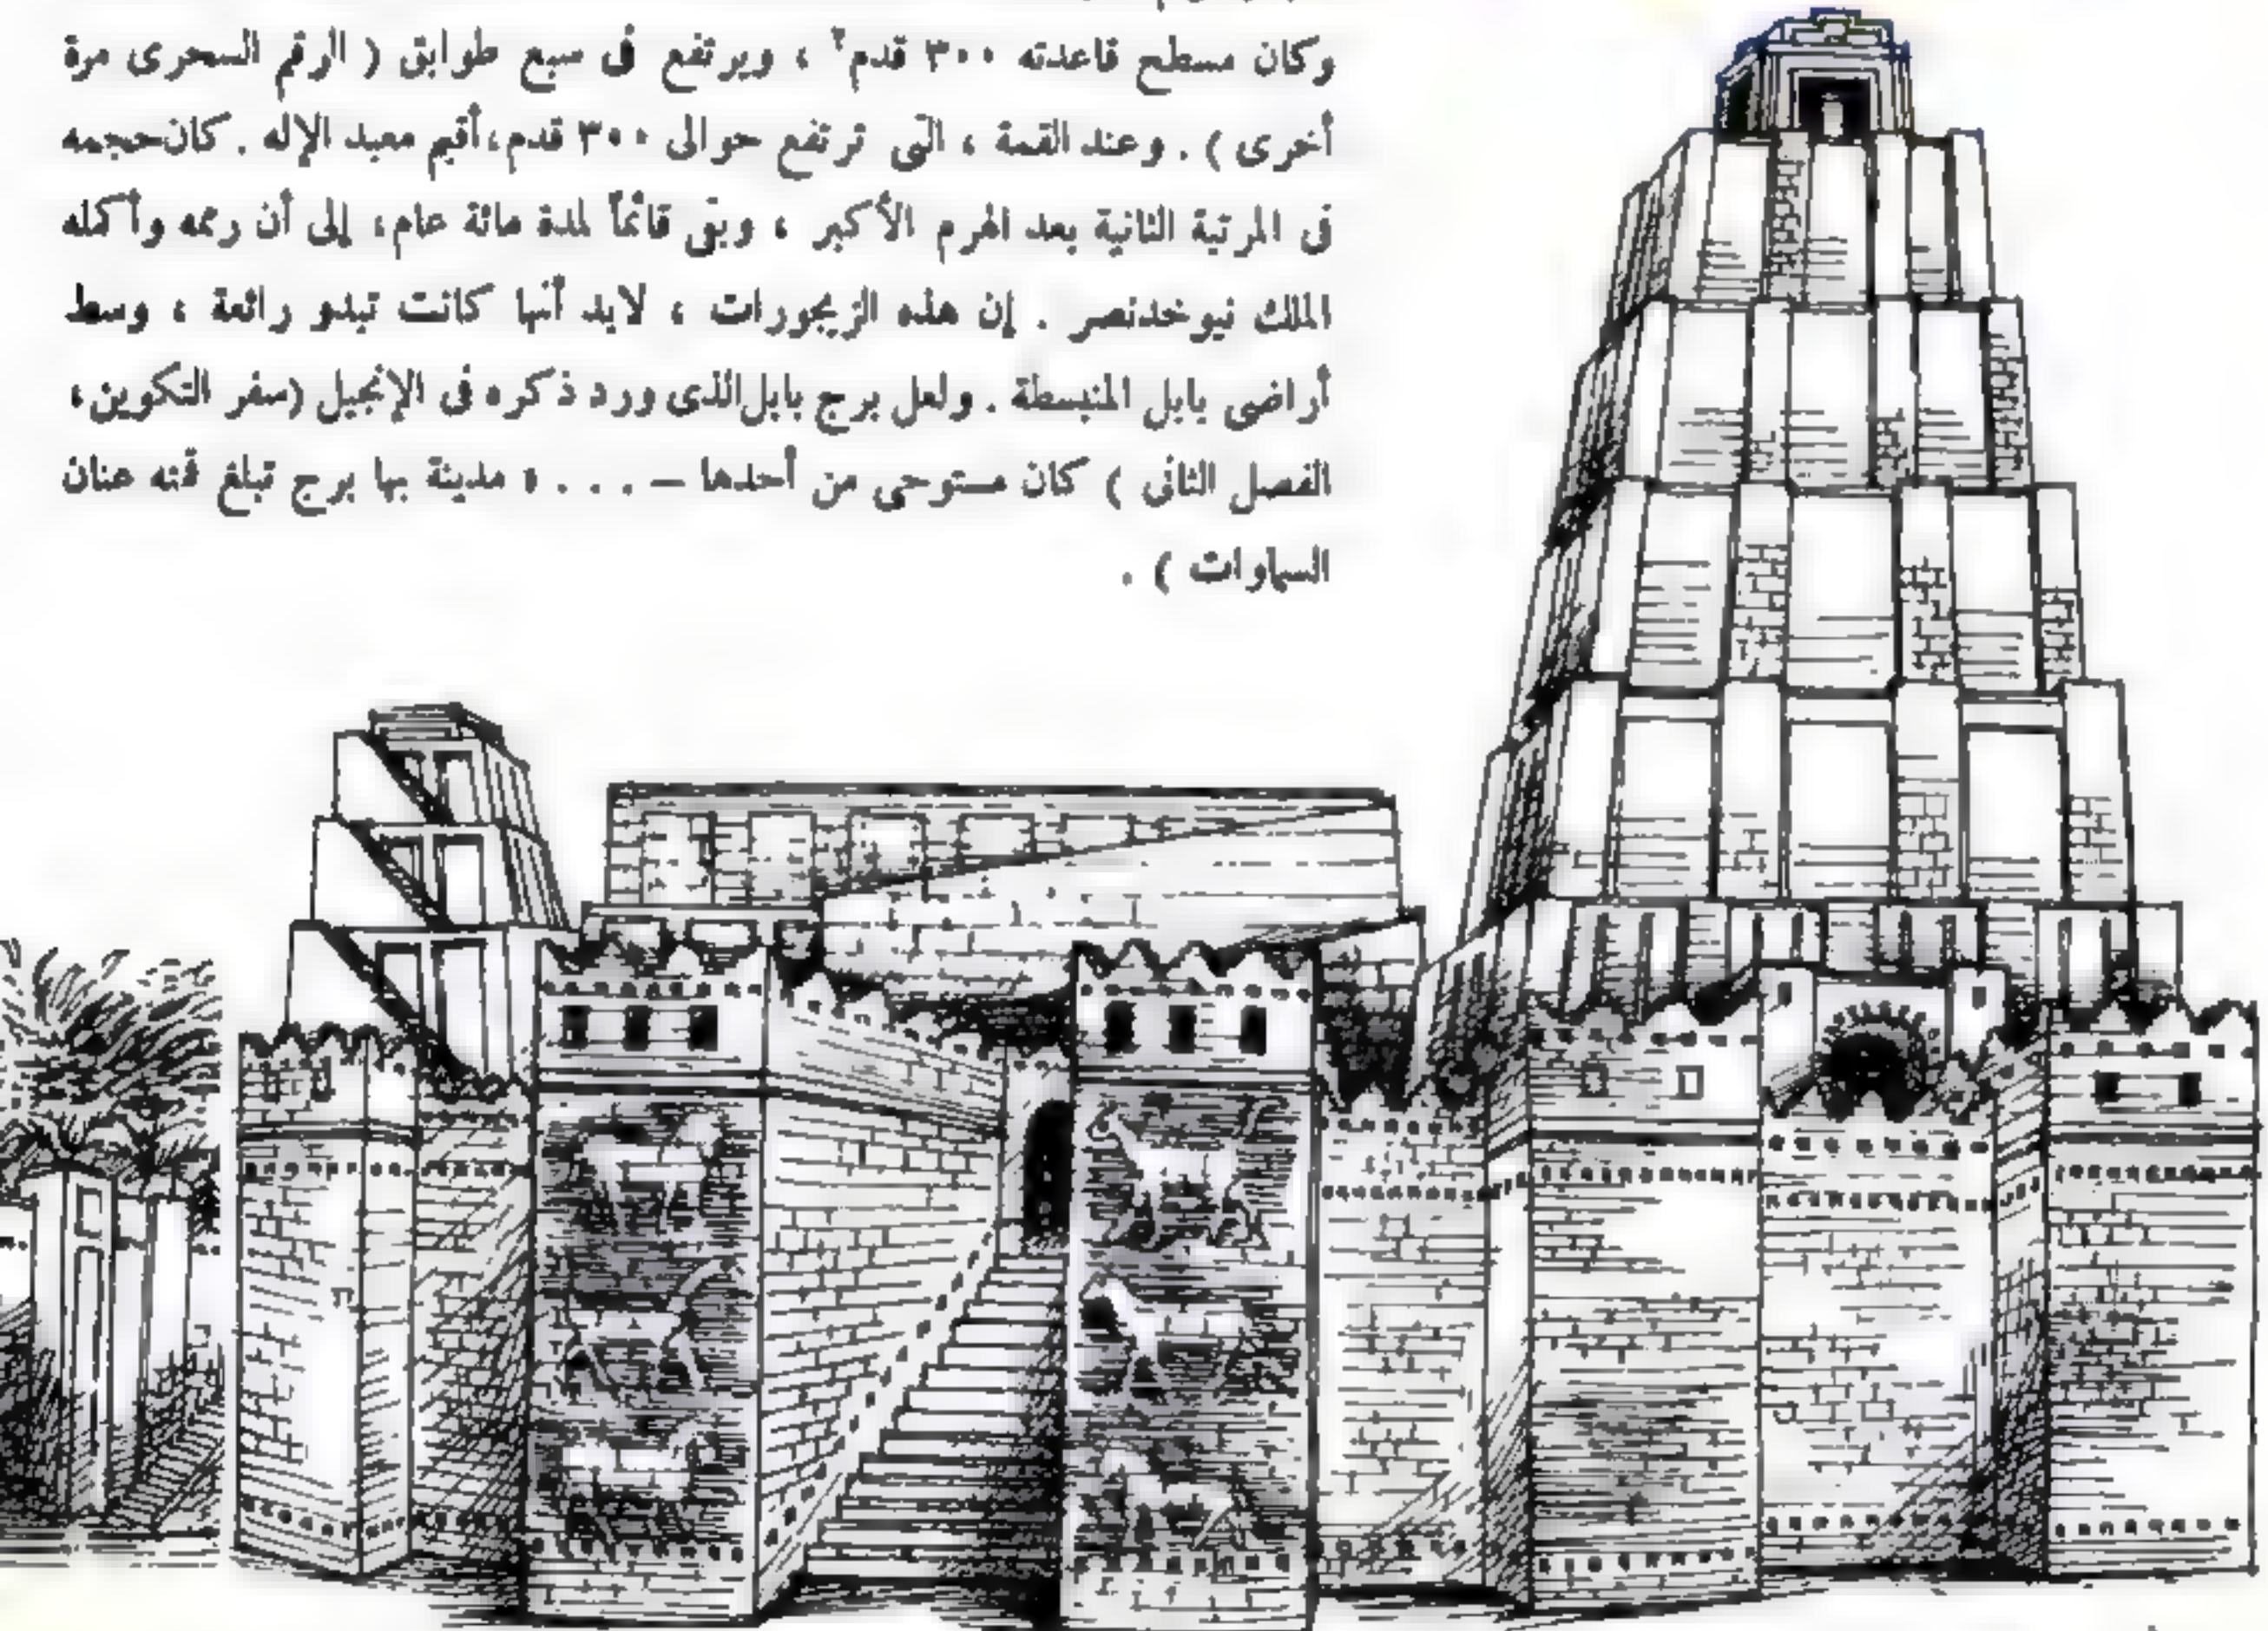 وكان مسطح قاعدته ٣٠٠ قدم٢ ، ويرتفع فى سبع طوابق ( الرقم السحرى مرة
أخرى ) . وعند القمة ، التى ترتفع حوالى ٣٠٠ قدم ، أقيم معبد الإله . كان حجمه
فى المرتبة الثانية بعد الهرم الأكبر ، وبقى قائماً لمدة مائة عام ، إلى أن رممه وأكمله
الملك نبوخدنصر . إن هذه الزيجورات ، لابد أنها كانت تبدو رائعة ، وسط
أراضى بابل المنبسطة . ولعل برج بابل الذى ورد ذكره فى الإنجيل (سفر التكوين ،
الفصل الثانى ) كان مستوحى من أحدها – . . . « مدينة بها برج تبلغ قمته عنان
السماوات ) .